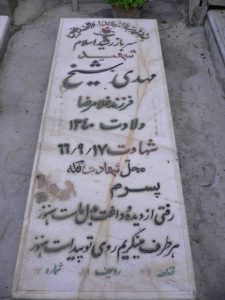 سرباز رشید اسلام
شهید
مهدی شیخ
فرزند غلامرضا
ولادت ۱۳۴۰
شهادت ۶۶/۹/۱۷
محل شهادت فکه
پسرم
رفتی از دیده و داغت بدل ماست هنوز
هر طرف مینگریم روی تو پیداست هنوز
قطعه ردیف شماره